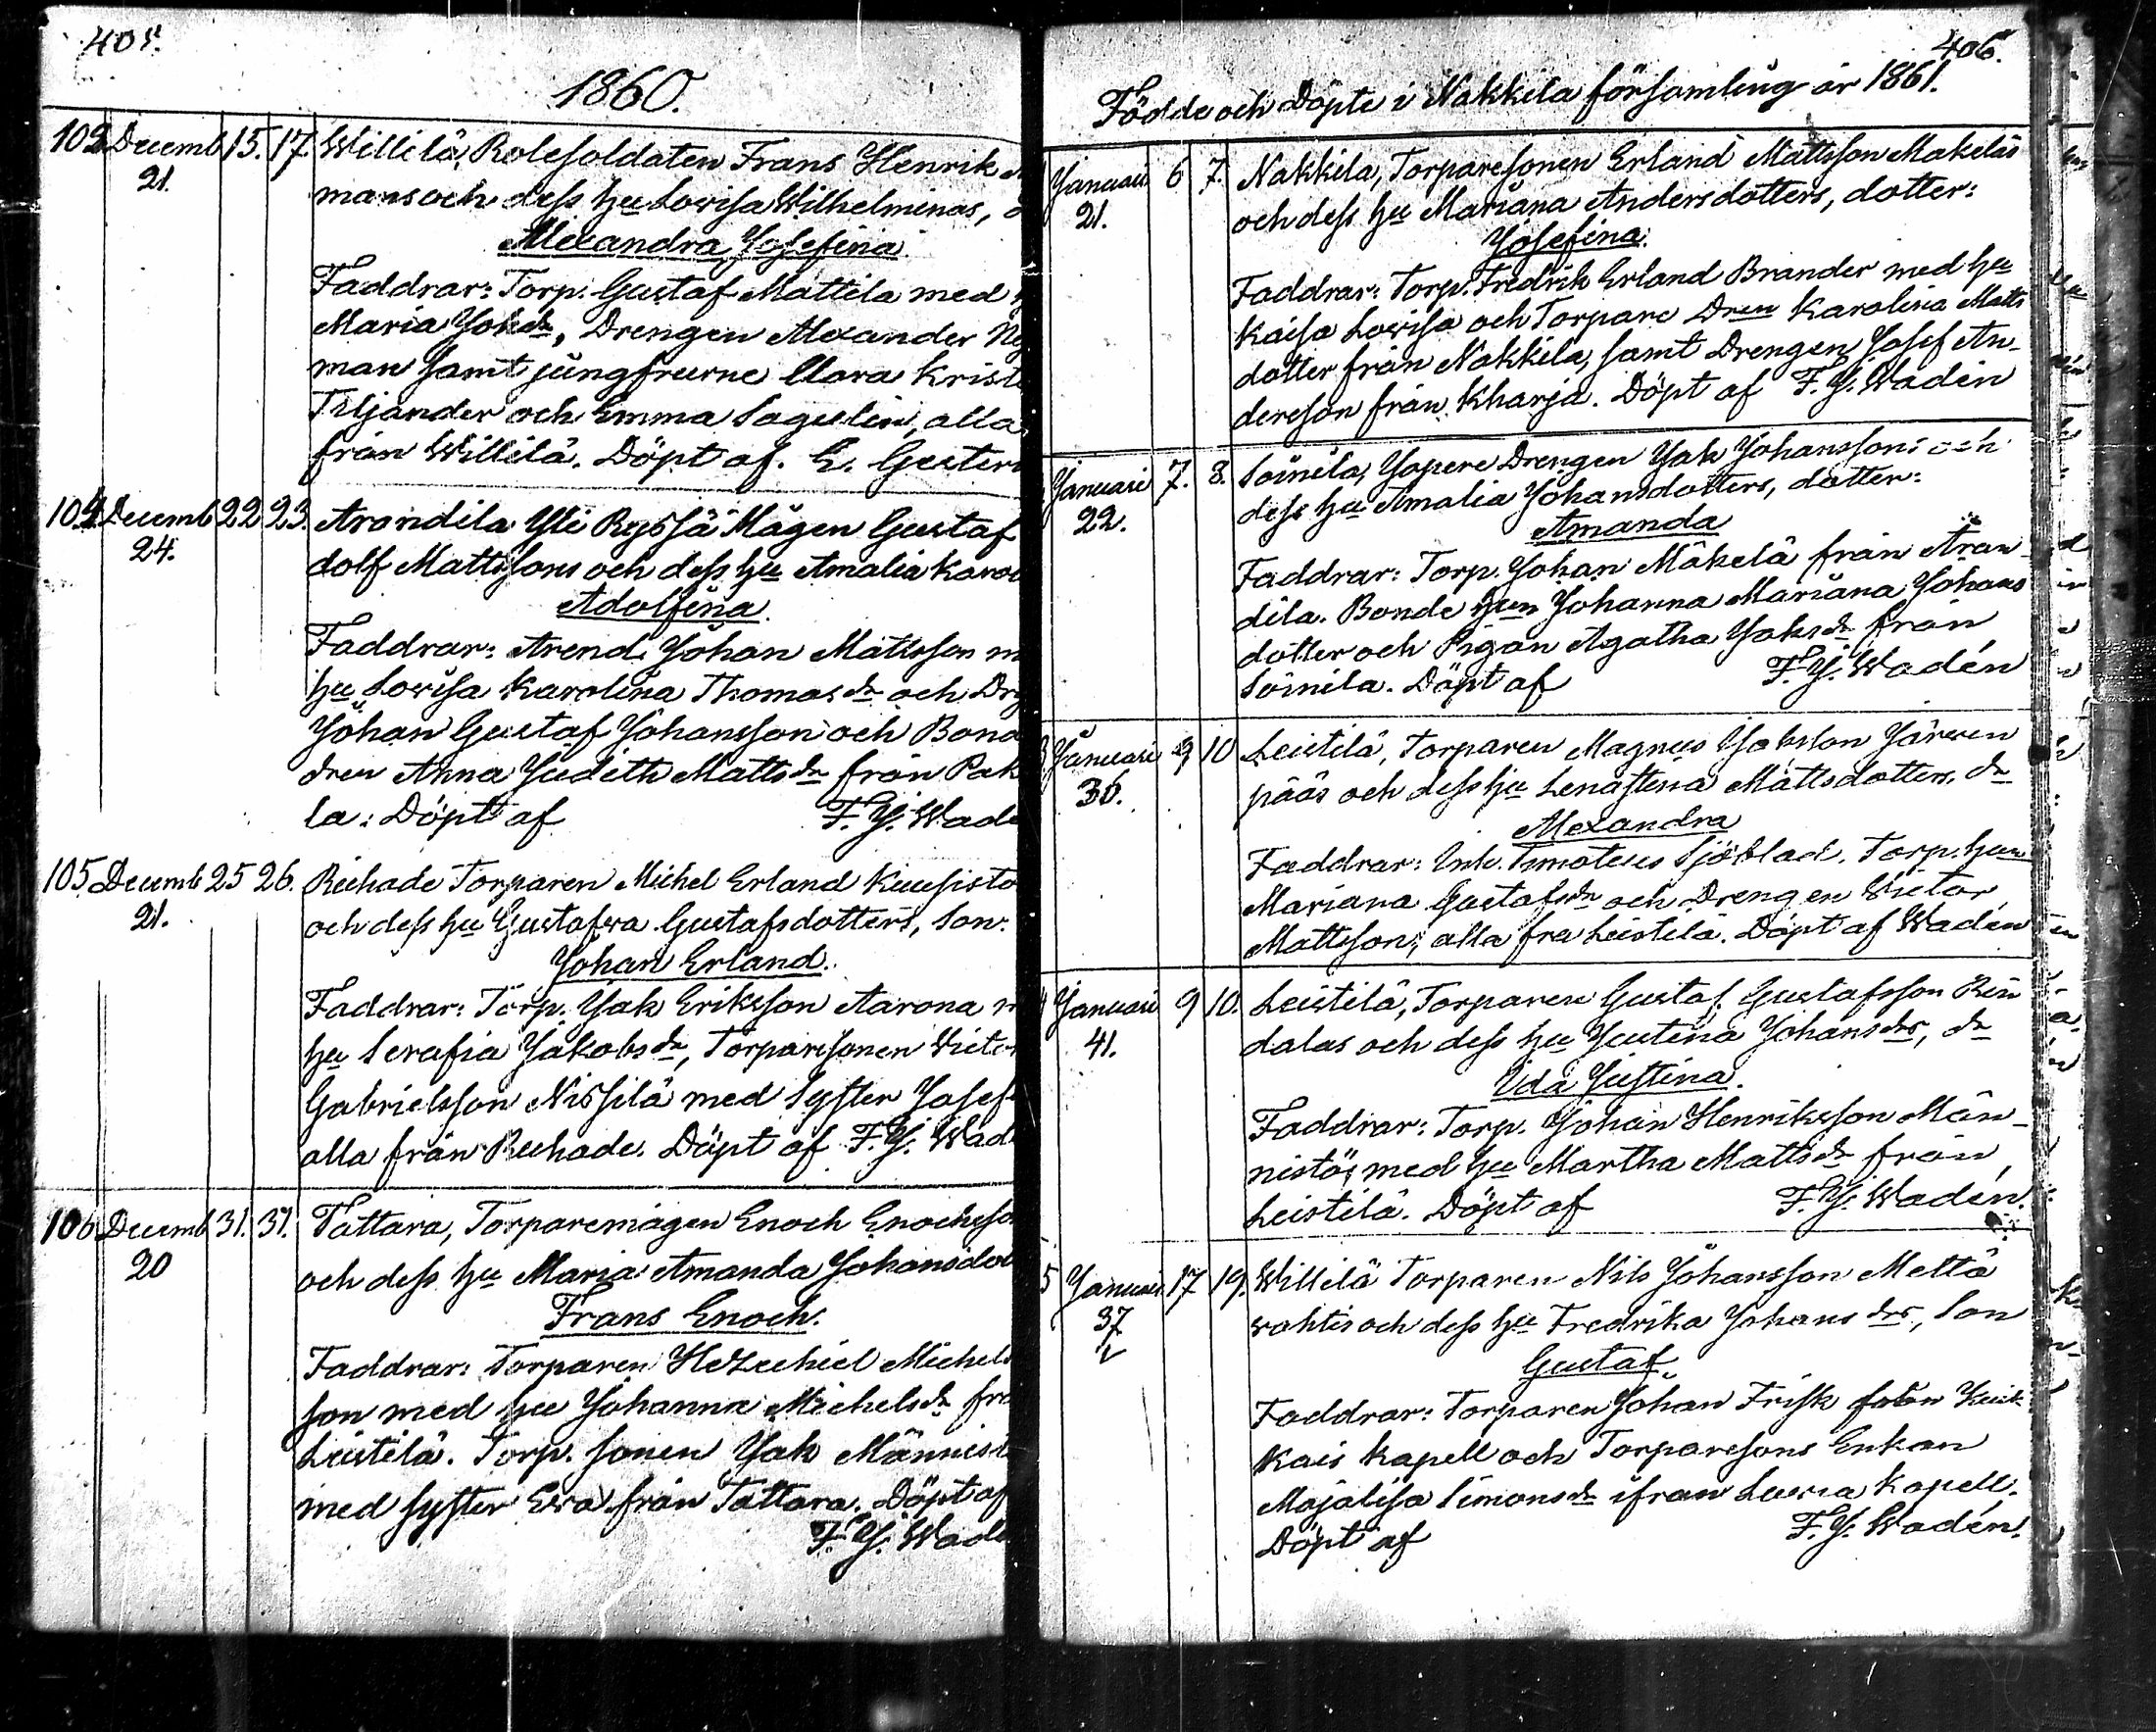 405.
1860.
103. Decemb 15. 17. Willilä, Rolesoldaten Frans Henrik
21. mans och dess hu Lovisa Wilhelminas,
Alexandra Josefina
Faddrar: Torp. Gustaf Mattila med
Maria Johdr, Drengen Alexander
man samt jungfrurne Clara Krist
Tiljander och Emma Sagulin, alla
från Willilä. Döpt af. E.
104 Decemb 22 23. Arandila Yli Ryssä Mågen Gustaf
24. dolf Mattssons och dess hu Amalia Karo
Adolfina.
Faddrar: Arend. Johan Mattsson m
hu Lovisa Karolina Thomasdr och Drg
Johan Gustaf Johansson och Bond
dren Anna Judith Mattsdr från Pak
la: Döpt af F. J. Wade
105. Decemb 25 26. Ruhade Torparen Michel Erland Kuusisto
21. och dess hu Gustafva Gustafsdotters, Son:
Johan Erland.
Faddrar: Torp. Jak Eriksson Aarona m
hu Serafia Jakobsdr, Torparesonen Victor
Gabrielsson Nissilä med Syster Josef
alla från Ruhade. Döpt af F. J. Wad
106. Decemb 31. 31. Tattara, Torparemågen Enoch Enochsso
20 och dess hu Maria Amanda Johansdot
Frans Enoch.
Faddrar: Torparen Hezechiel Michels
son med hu Johanna Michelsdr frå
Leistilä. Torp. sonen Jak Männist
med syster Eva från Tattara. Döpt af
F. J. Wade
406.
Födde och Döpte i Nakkila församling år 1861.
Januari 6 7. Nakkila, Torparesonen Erland Mattsson Makeläs
21. och dess hu Mariana Andersdotters, dotter:
Josefina.
Faddrar: Torp. Fredrik Erland Brander med hu
Kaisa Lovisa och Torpare Dren Karolina Matts
dotter från Nakkila, samt Drengen Josef An-
dersson från Kharja. Döpt af F. J. Wadén
Januari 7. 8. Soinila, Drengen Jak Johanssons och
22. dess hu Amalia Johansdotters, dotter:
Amanda
Faddrar: Torp. Johan Mäkelä från Aran-
dila. Bonde hun Johanna Mariana Johans
dotter och Pigan Agatha Jaksdr från
Soinila. Döpt af F. J. Wadén
3 Januari 9 10 Leistilä, Torparen Magnus Jaksson Järven
36. pääs och dess hu Lenastina Mattsdotters, dr
Alexandra
Faddrar: Inh. Timoteus Sjöblad. Torp. hun
Mariana Gustafsdr och Drengen Victor
Mattsson, alla frå Leistilä. Döpt af Wadén
4 Januari 9 10. Leistilä, Torparen Gustaf Gustafsson Rin
41. dalas och dess hu Justina Johansdrs, dr
Ida Justina.
Faddrar: Torp. Johan Henriksson Män-
nistö, med hu Martha Mattsdr från
Leistilä. Döpt af F. J. Wadén.
5 Januari 17 19. Willilä Torparen Nils Johansson Mettä
37 vahtis och dess hu Fredrika Johansdrs, Son
Gustaf
Faddrar: Torparen Johan Frisk från Kiuk
kais kapell och Torparesons Enkan
Majalisa Simonsdr ifrån Luvia Kapell.
Döpt af F. J. Wadén.